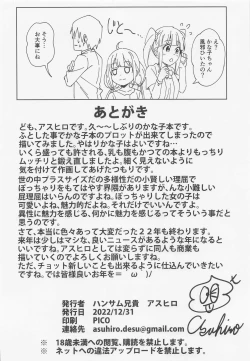 かな子ちゃん
風邪ひいたの？
そう…
お大事にね
あとがき
ども、アスヒロです。久〜〜しぶりのかな子本です。
ふとした事でかな子本のプロットが出来てしまったので
描いてみました。やはりかな子はよいですね…
いくら盛っても許される、乳も腹もかつての本よりもっちり
ムッチリと鍛え直しましたよ。細く見えないように
気を付けて作画してあげたつもりです。
世の中プラスサイズだの多様性だの小賢しい理屈で
ぽっちゃりをもてはやす界隈がありますが、んな小難しい
屁理屈はいらんのですよ。ぽっちゃりした女の子は
可愛いよね、魅力的だよね。それだけでいいんですよ。
異性に魅力を感じる、何かを感じるってそういう事だと
思うのです。
さて、まあ色々あって大変だった２２年も終わります。
来年は少しはマシな、良いニュースがあるような年になると
いいですね。アスヒロとしては変らずに同人も商業も
描いていくのでよろしくお願いしますね。
ただ、チョット新しいことも出来るように仕込んでいきたい
ですね。では皆様良いお年を＝　ω　)ノ
発行者　ハンサム兄貴　アスヒロ
発行日　2022/12/31
印刷　PICO
連絡先　asuhiro.desu@gmail.com
Asuhiro
※　18歳未満の閲覧、購読を禁じます。
※　ネットへの違法アップロードを禁じます。